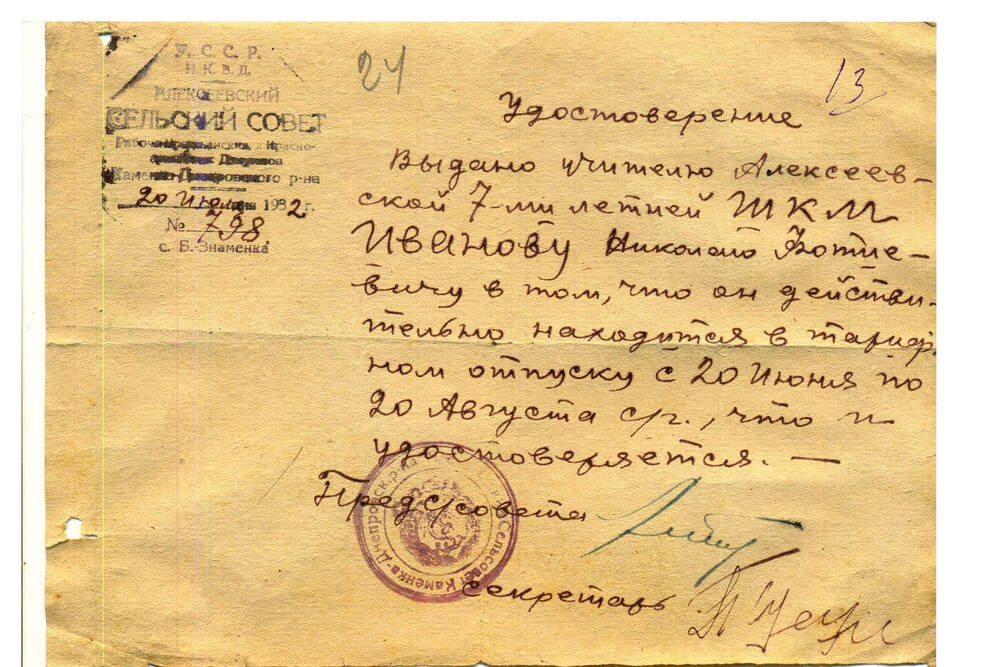 24
13
У. С. С. Р.
Н. К. В. Д.
АЛЕКСЕЕВСКИЙ
СЕЛЬСКИЙ СОВЕТ
Рабоче-Крестьянских и Красно-
армейских Депутатов
Каменко-Днепровского р-на
20 Июня 1932 г.
№ 798
с. Б.-Знаменка
Удостоверение
Выдано учителю Алексеев-
ской 7-ми летней ШКМ
ИВАНОВУ Николаю Фотие-
вичу в том, что он действи-
тельно находится в тариф-
ном отпуску с 20 Июня по
20 Августа с/г., что и
удостоверяется. —
Пред с/совета
Секретарь
Сельсовет Каменка-Днепровск. р-на